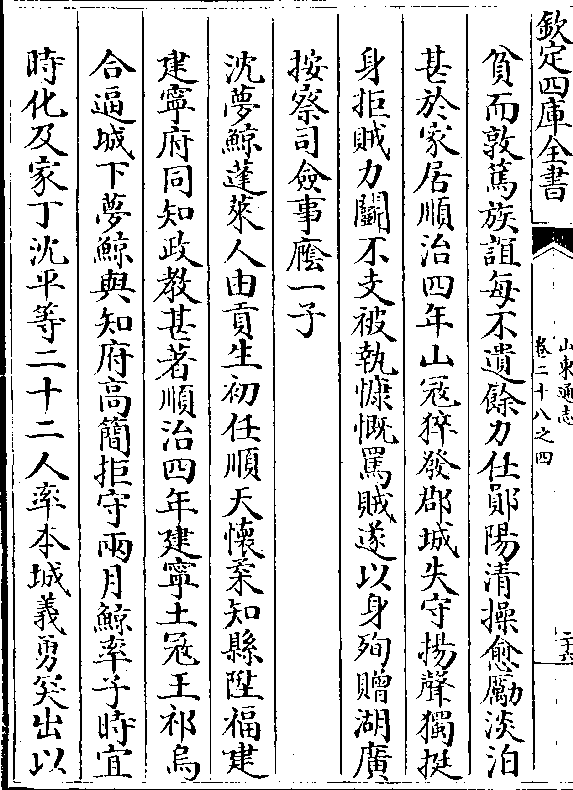 欽定四庫全書
山東通志
卷二十八之四
二十六
貧而敦篤族誼每不遺餘力仕鄖陽清操愈勵淡泊
甚於家居順治四年山冦猝發郡城失守揚聲獨挺
身拒賊力鬭不支被執慷慨罵賊遂以身殉贈湖廣
按察司僉事廕一子
沈夢鯨蓬萊人由貢生初任順天懷柔知縣陞福建
建寧府同知政教甚著順治四年建寧土冦王祁烏
合逼城下夢鯨與知府高簡拒守兩月鯨率子時宜
時化及家丁沈平等二十二人率本城義勇突出以